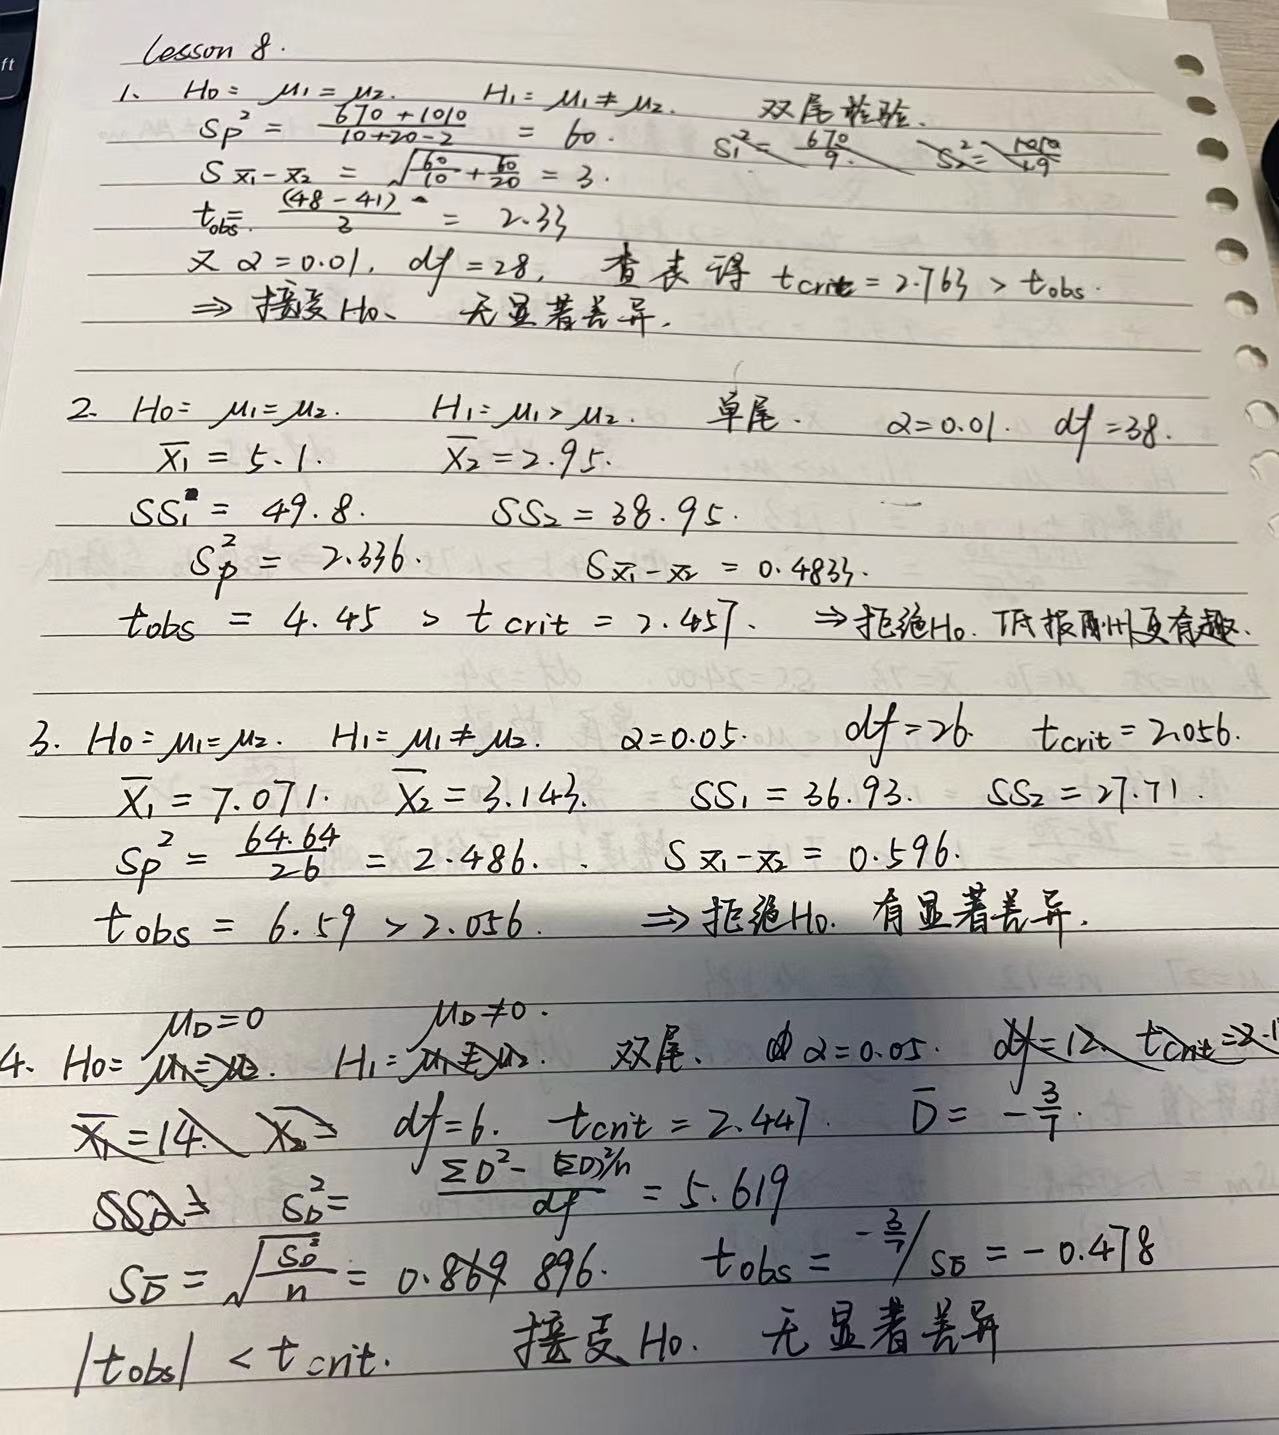 ft
Lesson 8.
1. H0: μ1 = μ2. H1: μ1 ≠ μ2. 双尾检验.
Sp² = (670 + 1010)/(10+20-2) = 60. S1² = 670/9. S2² = 1010/19
S x̄1-x̄2 = √(60/10 + 60/20) = 3.
tobs = (48-41)/3 = 2.33
又 α = 0.01, df = 28, 查表得 tcrit = 2.763 > tobs.
⇒ 接受H0、 无显著差异.
2. H0: μ1 = μ2. H1: μ1 > μ2. 单尾. α=0.01. df=38.
x̄1 = 5.1. x̄2 = 2.95.
SS1 = 49.8. SS2 = 38.95.
Sp² = 2.336. S x̄1-x̄2 = 0.4833.
tobs = 4.45 > tcrit = 2.457. ⇒ 拒绝H0. 低报酬更有趣.
3. H0: μ1=μ2. H1: μ1 ≠ μ2. α=0.05. df=26. tcrit = 2.056.
x̄1 = 7.071. x̄2 = 3.143. SS1 = 36.93. SS2 = 27.71.
Sp² = 64.64/26 = 2.486. S x̄1-x̄2 = 0.596.
tobs = 6.59 > 2.056. ⇒ 拒绝H0. 有显著差异.
μD=0 μD≠0.
4. H0: μ1=μ2. H1: μ1≠μ2. 双尾. α=0.05. df=12. tcrit=2.1
x̄1=14. x̄2= df=6. tcrit = 2.447. D̄ = -3/7.
SD² = (ΣD² - (ΣD)²/n)/df = 5.619
SD̄ = √(SD²/n) = 0.869 896. tobs = -3/7 / SD̄ = -0.478
|tobs| < tcrit. 接受H0. 无显著差异